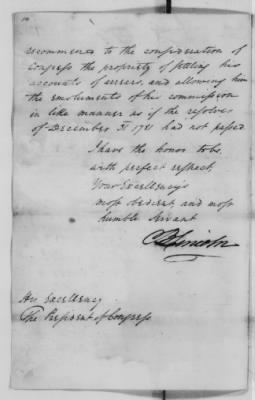 recommend to the consideration of
Congress the propriety of settling his
accounts of arrears, and allowing him
the emoluments of his commission
in like manner as if the resolves
of December 31 1781 had not passed
I have the honor to be,
with perfect respect,
Your Excellency's
most obedient, and most
humble servant
B Lincoln
His Excellency
The President of Congress